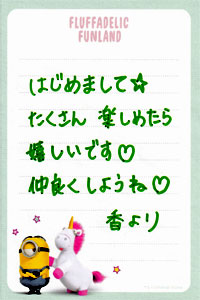 FLUFFADELIC
FUNLAND
はじめまして☆
たくさん 楽しめたら
嬉しいです♡
仲良くしようね♡
香より